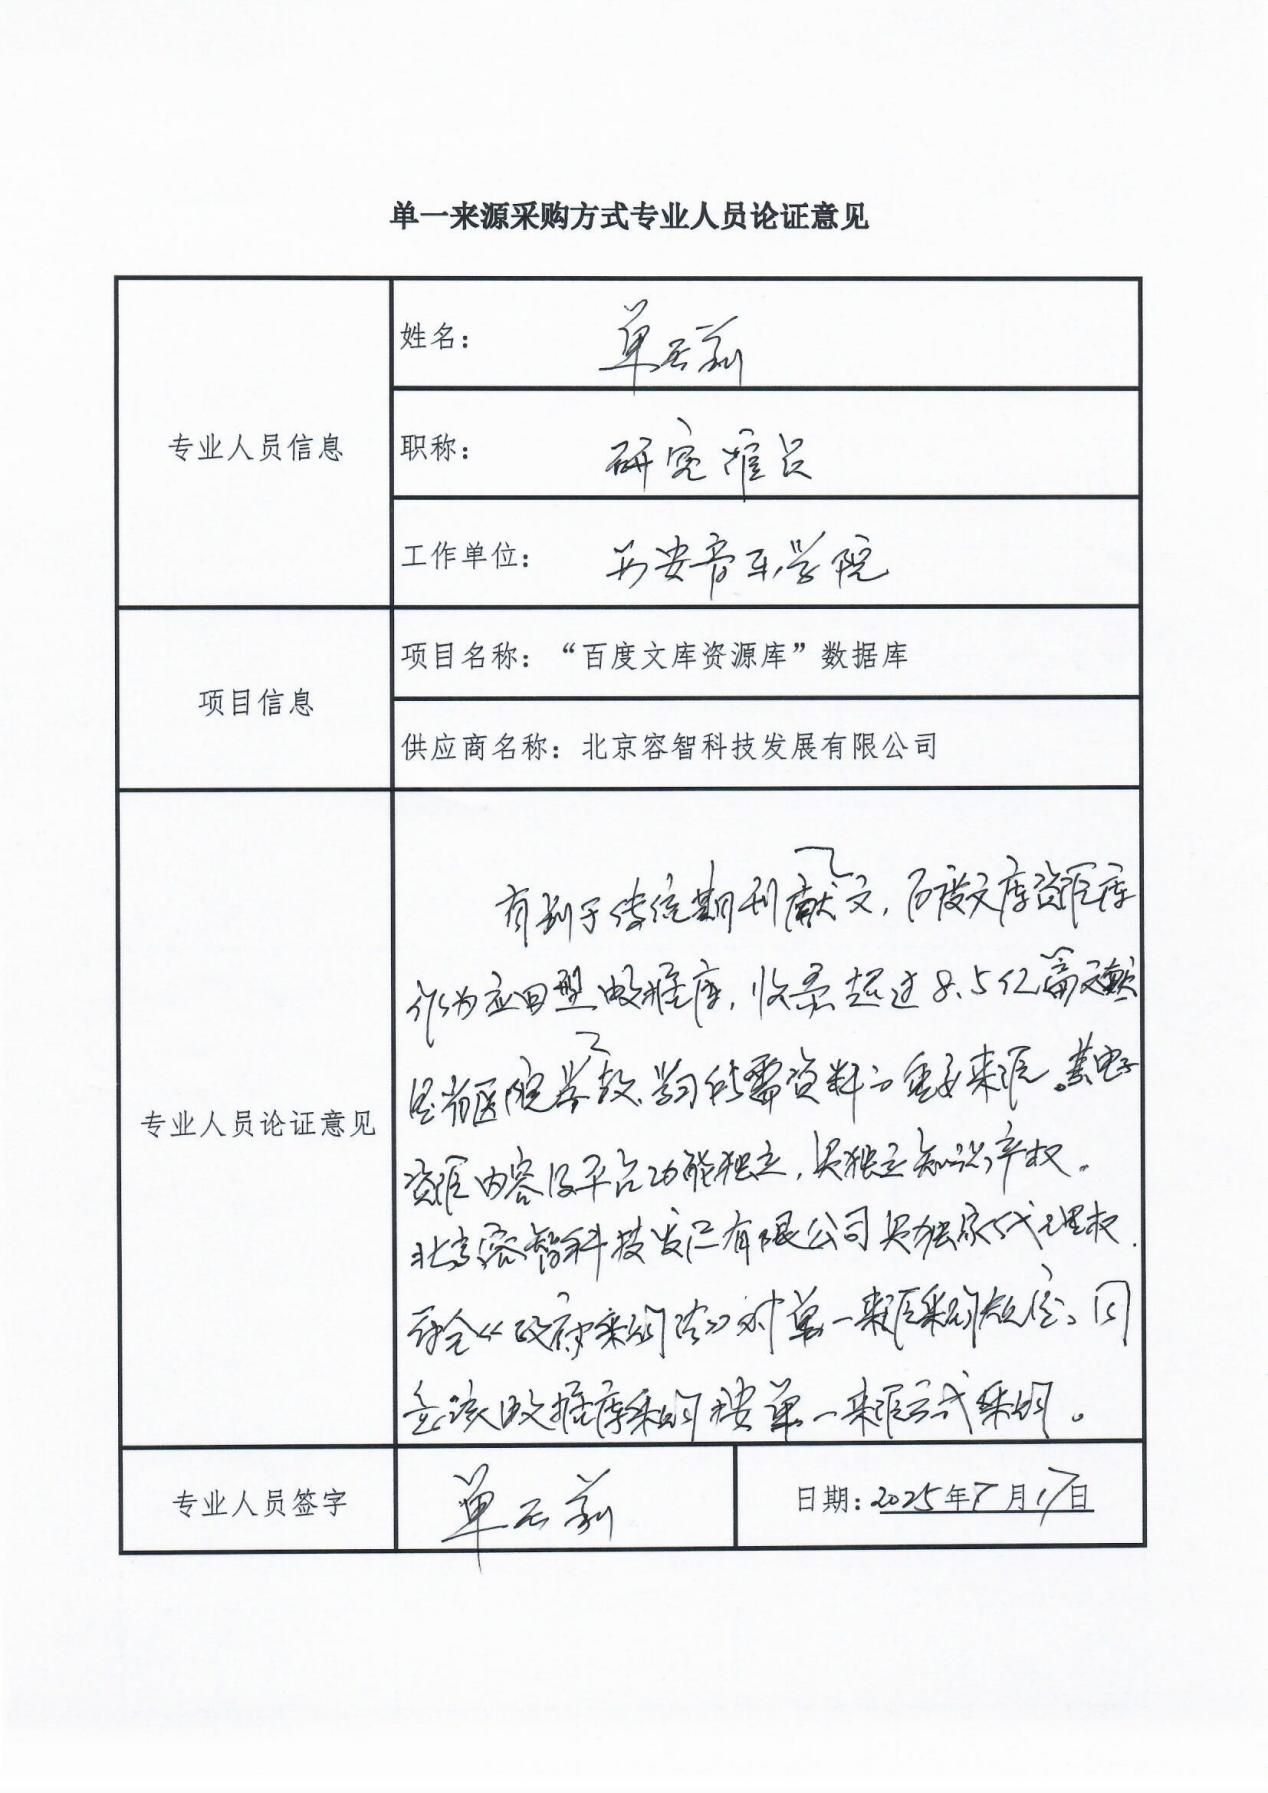 单一来源采购方式专业人员论证意见
专业人员信息
姓名：单云莉
职称：研究馆员
工作单位：西安音乐学院
项目信息
项目名称：“百度文库资源库”数据库
供应商名称：北京容智科技发展有限公司
专业人员论证意见
有别于传统期刊献文，百度文库资源库
作为应用型数据库，收录超过8.5亿篇文献
是 学习所需资料的重要来源。其电子
资源内容及平台功能独立，具独立知识产权。
北京容智科技发展有限公司具独家代理权，
符合《政府采购法》对单一来源采购规定，同
意该数据库采购按单一来源方式采购。
专业人员签字
单云莉
日期：2025年5月17日